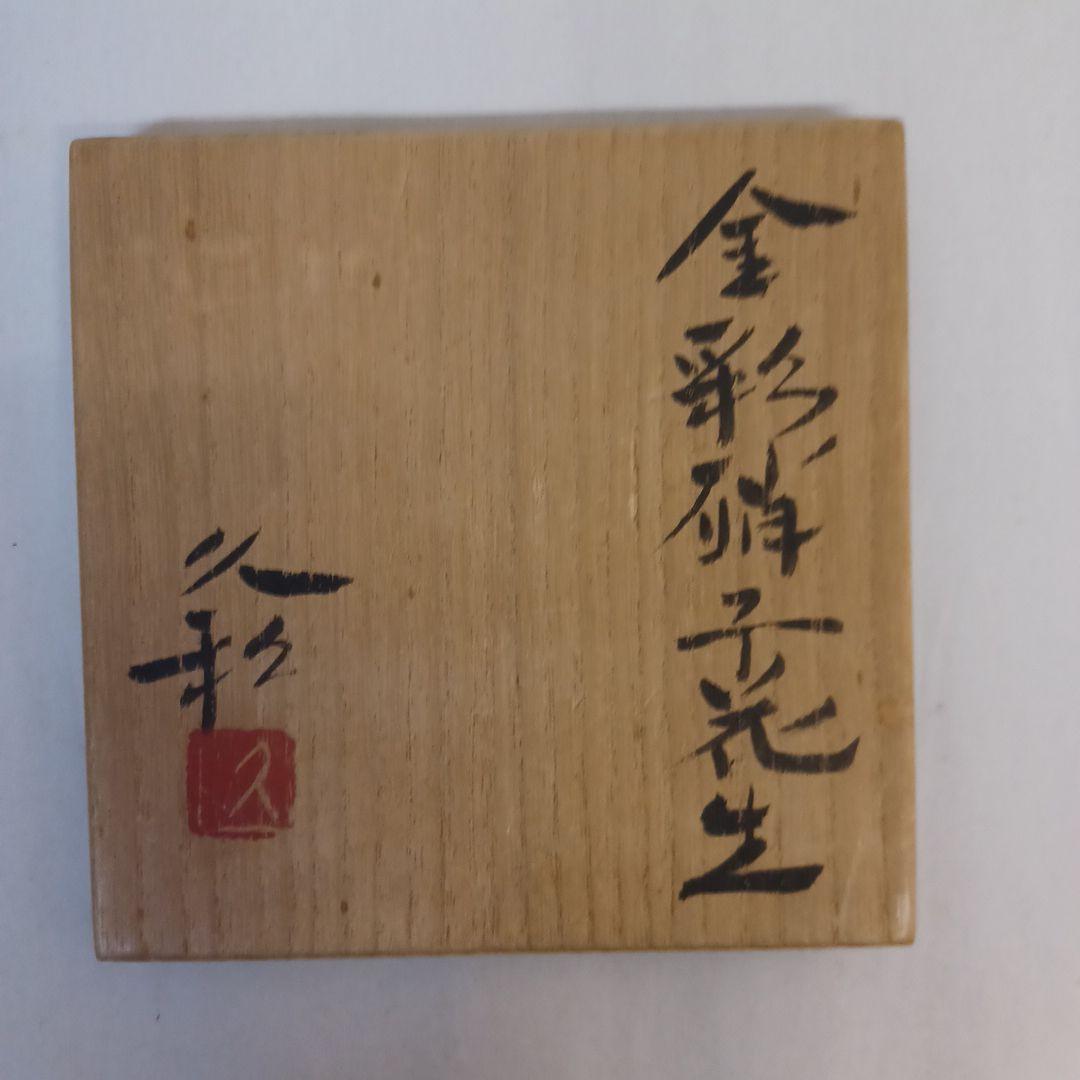 金彩硝子花生
久彩
久